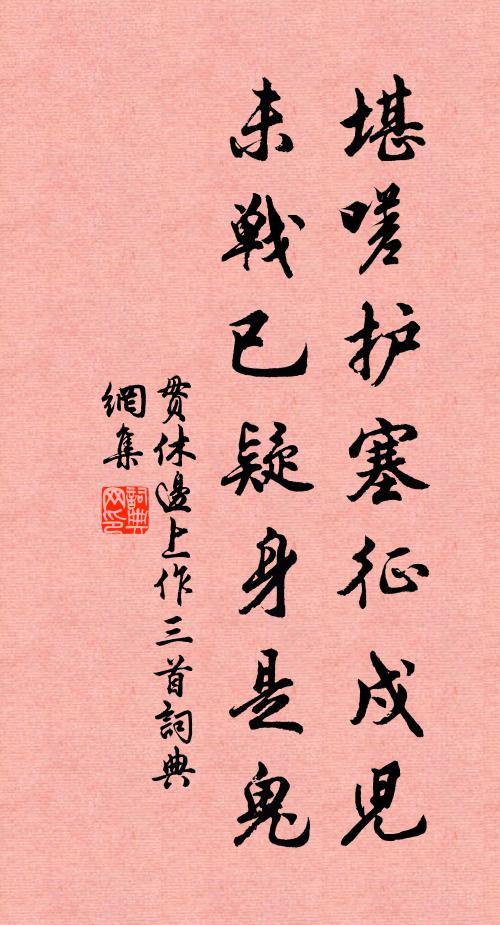 堪嗟护塞征戍児
未戦已疑身是鬼
贯休邊上作三首詞典
網集
詞典网印